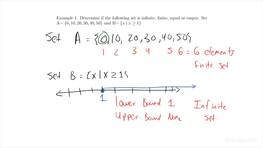 Example 1. Determine if the following set is infinite, finite, equal or empty. Set
A = {0, 10, 20, 30, 40, 50} and B = {x | x ≥ 1}
Set A = {0, 10, 20, 30, 40, 50}
1 2 3 4 5 6 = 6 elements
finite set
Set B = {x | x ≥ 1}
1
lower bound 1
Infinite
Upper bound
set